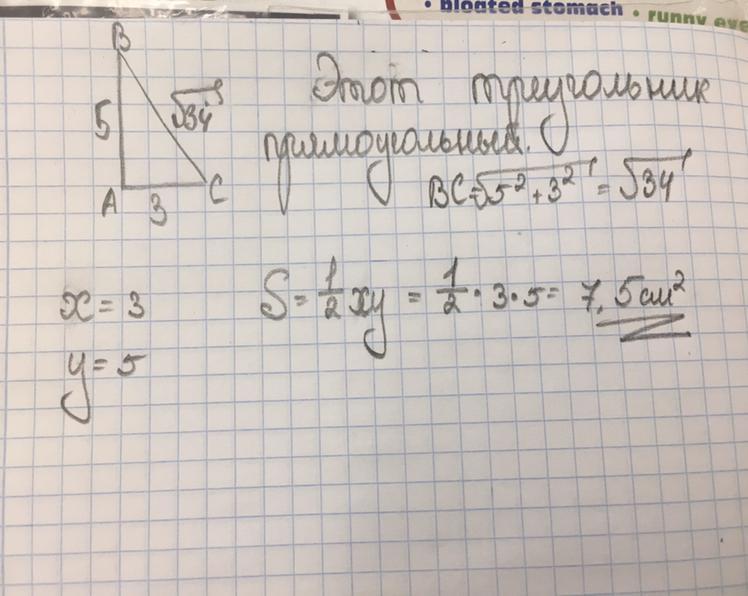 • bloated stomach • runny eye
B
Этот треугольник
5
√34
прямоугольный.
A
3
C
BC=√5²+3² = √34
x = 3
S = 1/2 xy = 1/2 · 3 · 5 = 7,5 см²
y = 5